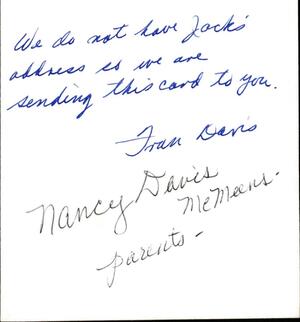 We do not have Jack's
address so we are
sending this card to you.
Fran Davis
Nancy Davis
McMeens-
parents-